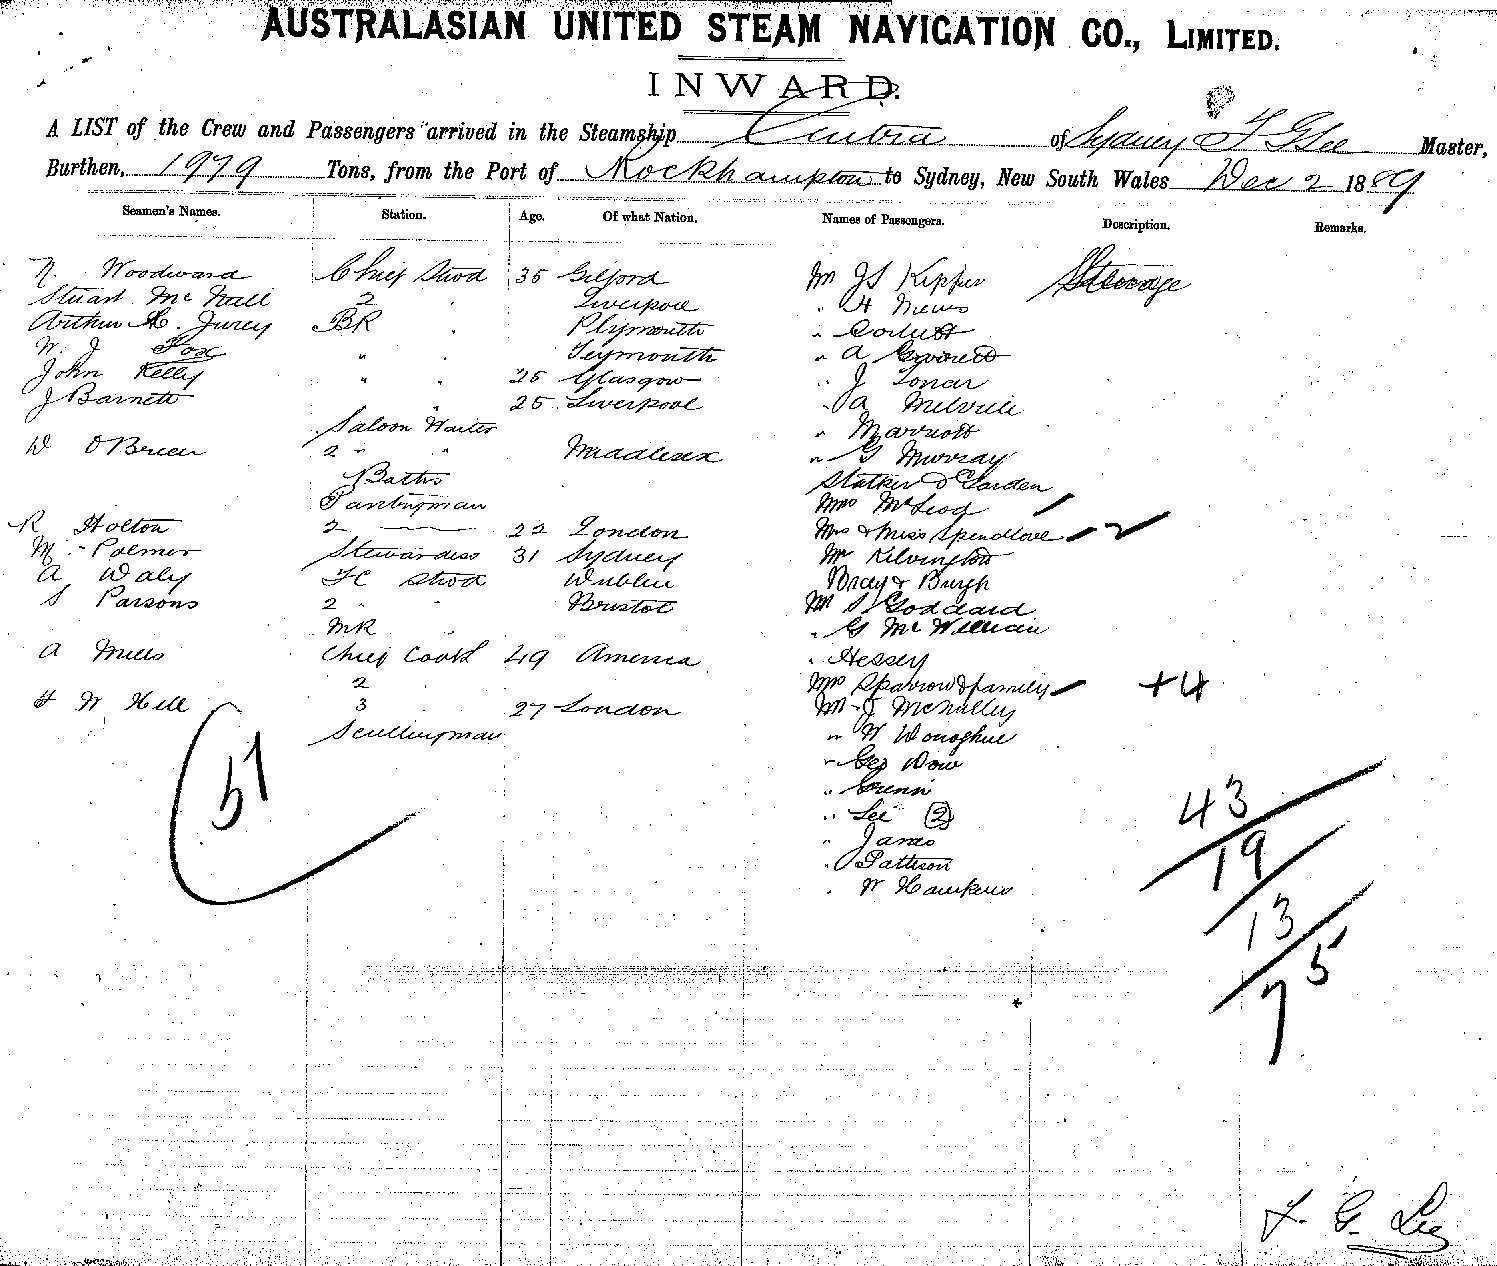 AUSTRALASIAN UNITED STEAM NAVIGATION CO., LIMITED.
INWARD.
A LIST of the Crew and Passengers arrived in the Steamship Cintra of Sydney F G Lee Master,
Burthen, 1979 Tons, from the Port of Rockhampton to Sydney, New South Wales Dec 2 1889
Seamen's Names. Station. Age. Of what Nation. Names of Passengers. Description. Remarks.
Woodward Chief Stwd 35 Gilford Mr JS Kipper Steerage
Stuart McNall 2 " Liverpool " H Niews
Arthur H. Jurey BR " Plymouth " Corlett
W. J Fox " Teymouth " A Gwoett
John Kelly " " 25 Glasgow " J Lonar
J Barnett " 25 Liverpool " A Melville
Saloon Waiter " Marriott
W O'Brien 2 " " Middlesex " G Murray
Baths Stalker & Garden
Pantryman Mrs McLeod
R Holton 2 — 22 London Mrs & Miss Spendlove 2
M. Palmer Stewardess 31 Sydney Mr Kilvington
A Waly FC Stwd Dublin Bray & Burgh
S Parsons 2 " " Bristol Mr S Goddard
MR " " G McWilliam
A Mills Chief Cook 49 America " Hessey
2 " Mrs Sparrow & family +4
H W Hill 3 27 London Mr J McNalley
Sculleryman " W Donoghue
" Geo Dow
51 " Grenn
" Lee (2) 43
" James 19
" Pattison
" W Hawkins 13
75
F. G. Lee